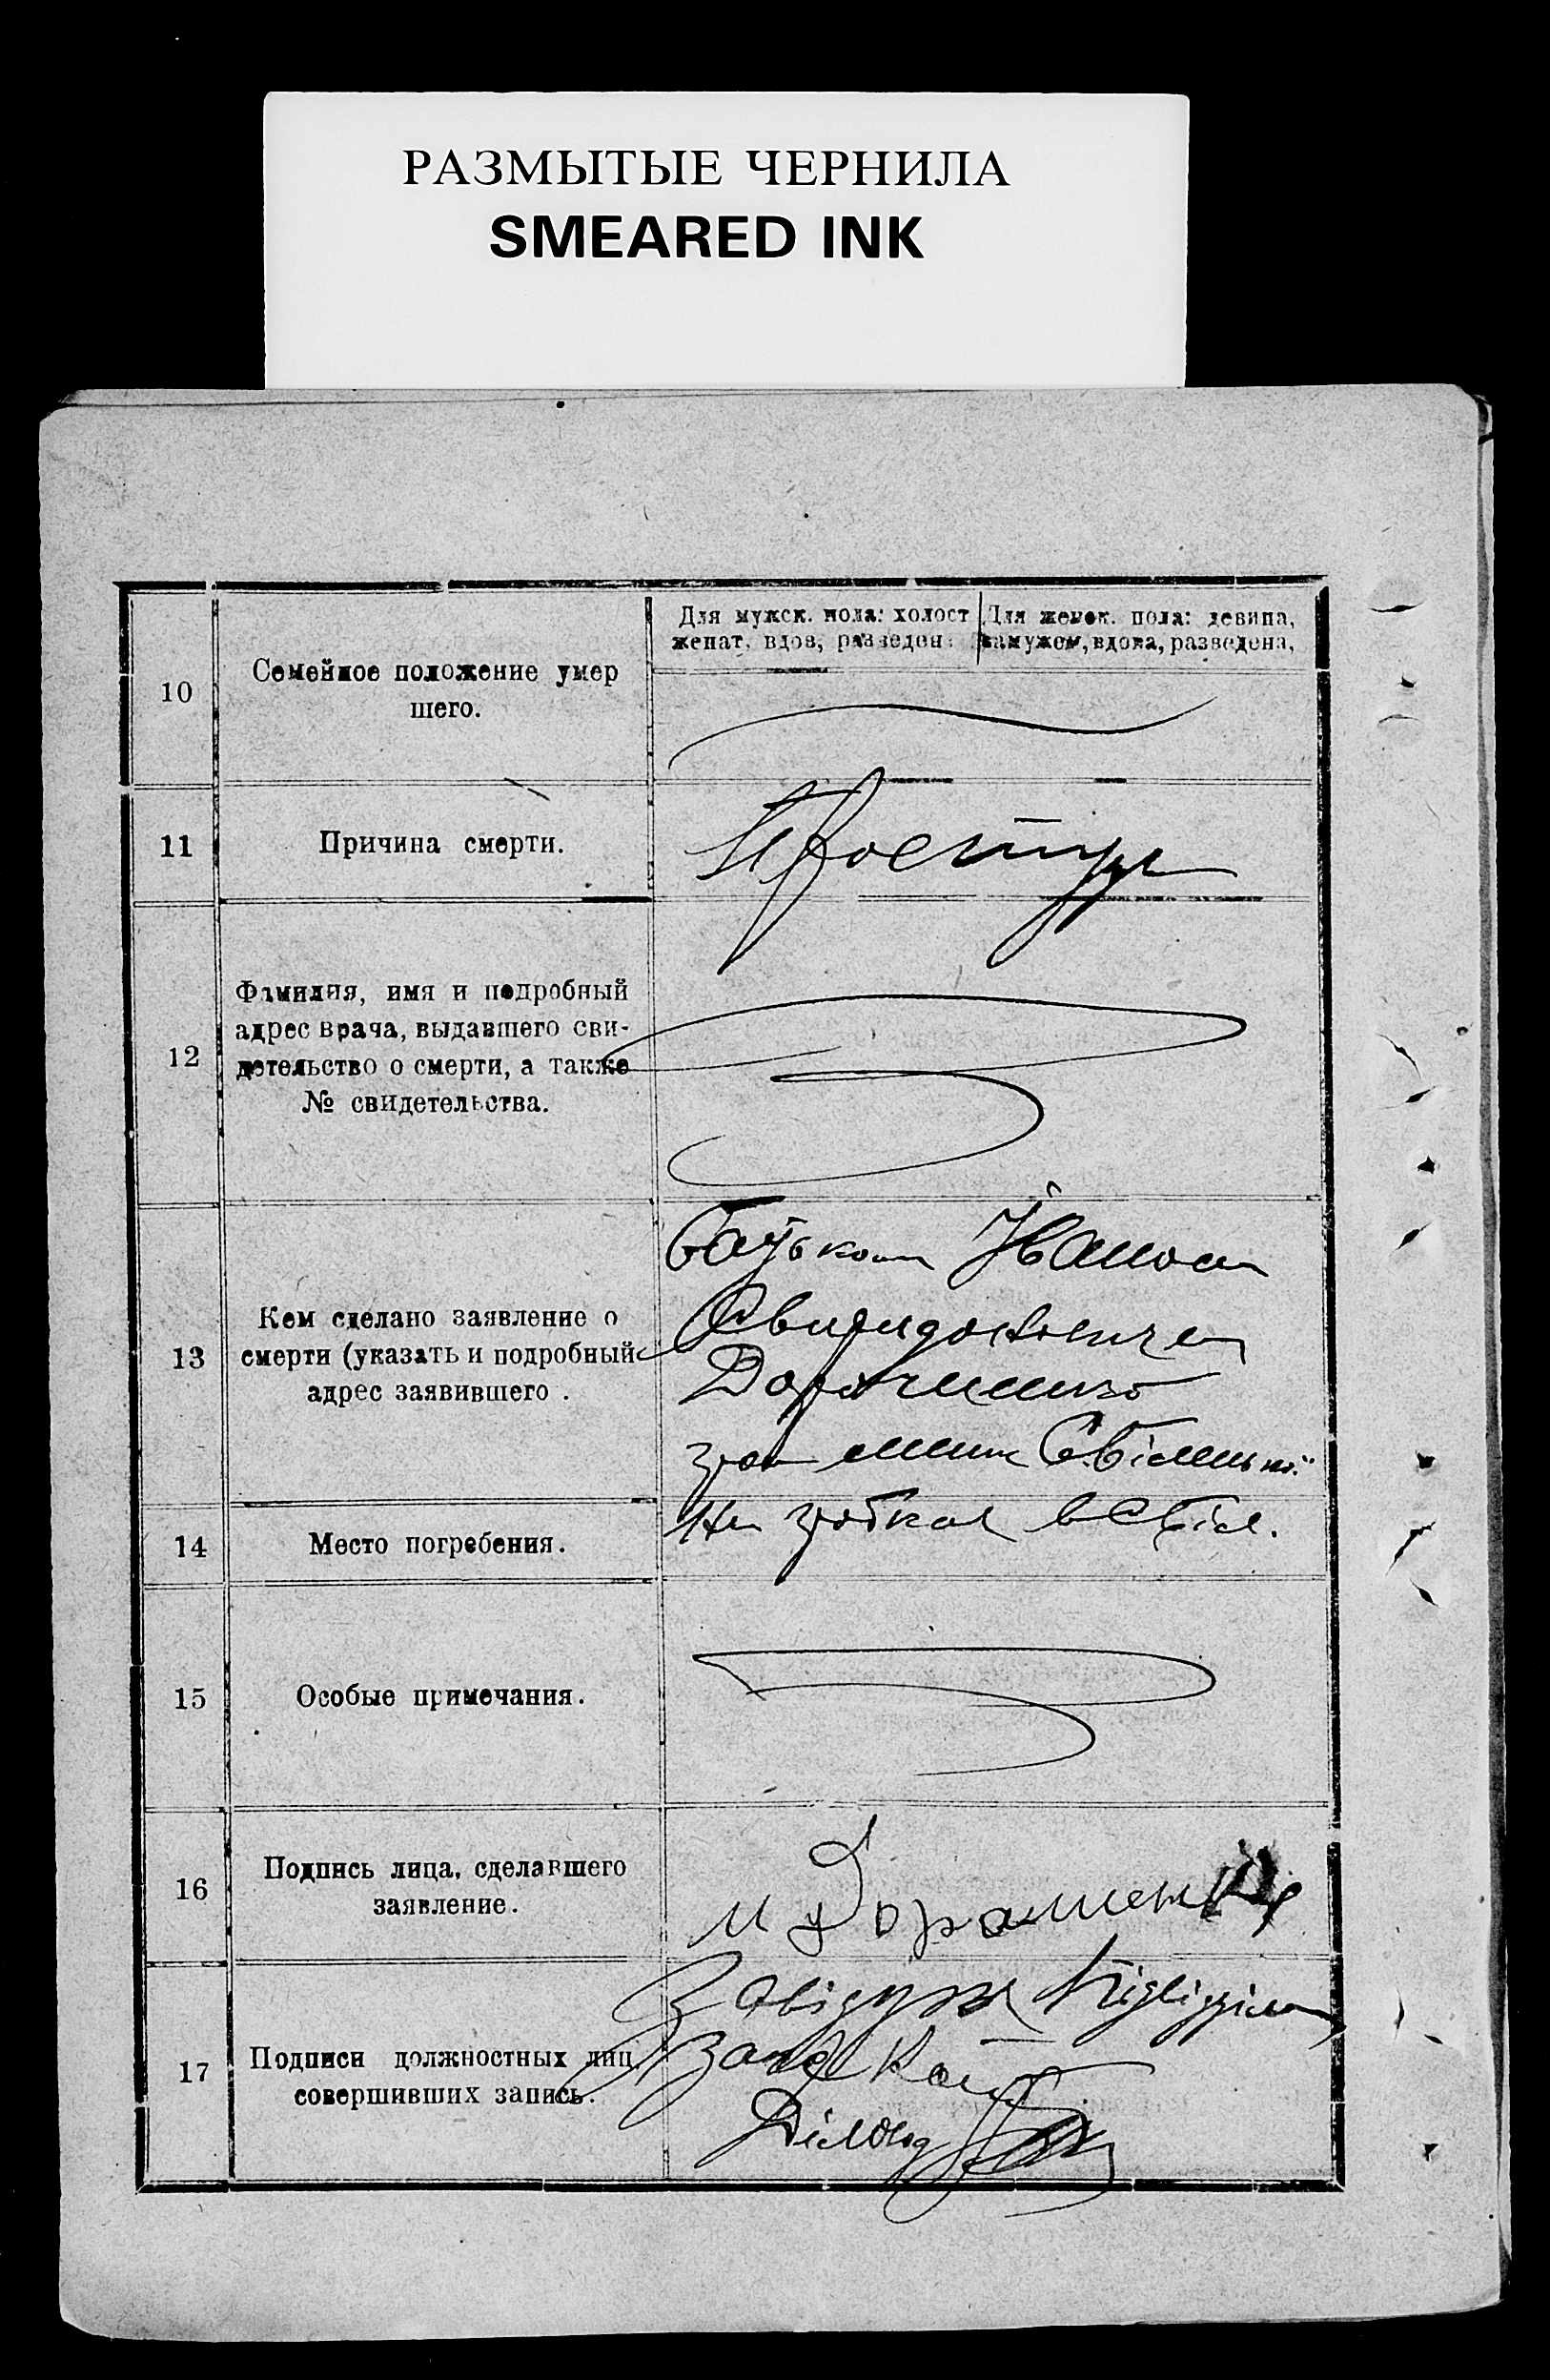 РАЗМЫТЫЕ ЧЕРНИЛА
SMEARED INK
10
Семейное положение умер
шего.
Для мужск. пола: холост
женат, вдов, разведен.
Для женск. пола: девица,
замужем, вдова, разведена,
11
Причина смерти.
Простуд
12
Фамилия, имя и подробный
адрес врача, выдавшего сви-
детельство о смерти, а также
№ свидетельства.
13
Кем сделано заявление о
смерти (указать и подробный
адрес заявившего .
Батьком Іваном
Свиридовичем
14
Место погребения.
15
Особые примечания.
16
Подпись лица, сделавшего
заявление.
17
Подписи должностных лиц,
совершивших запись.
Завідуюч
Діловод